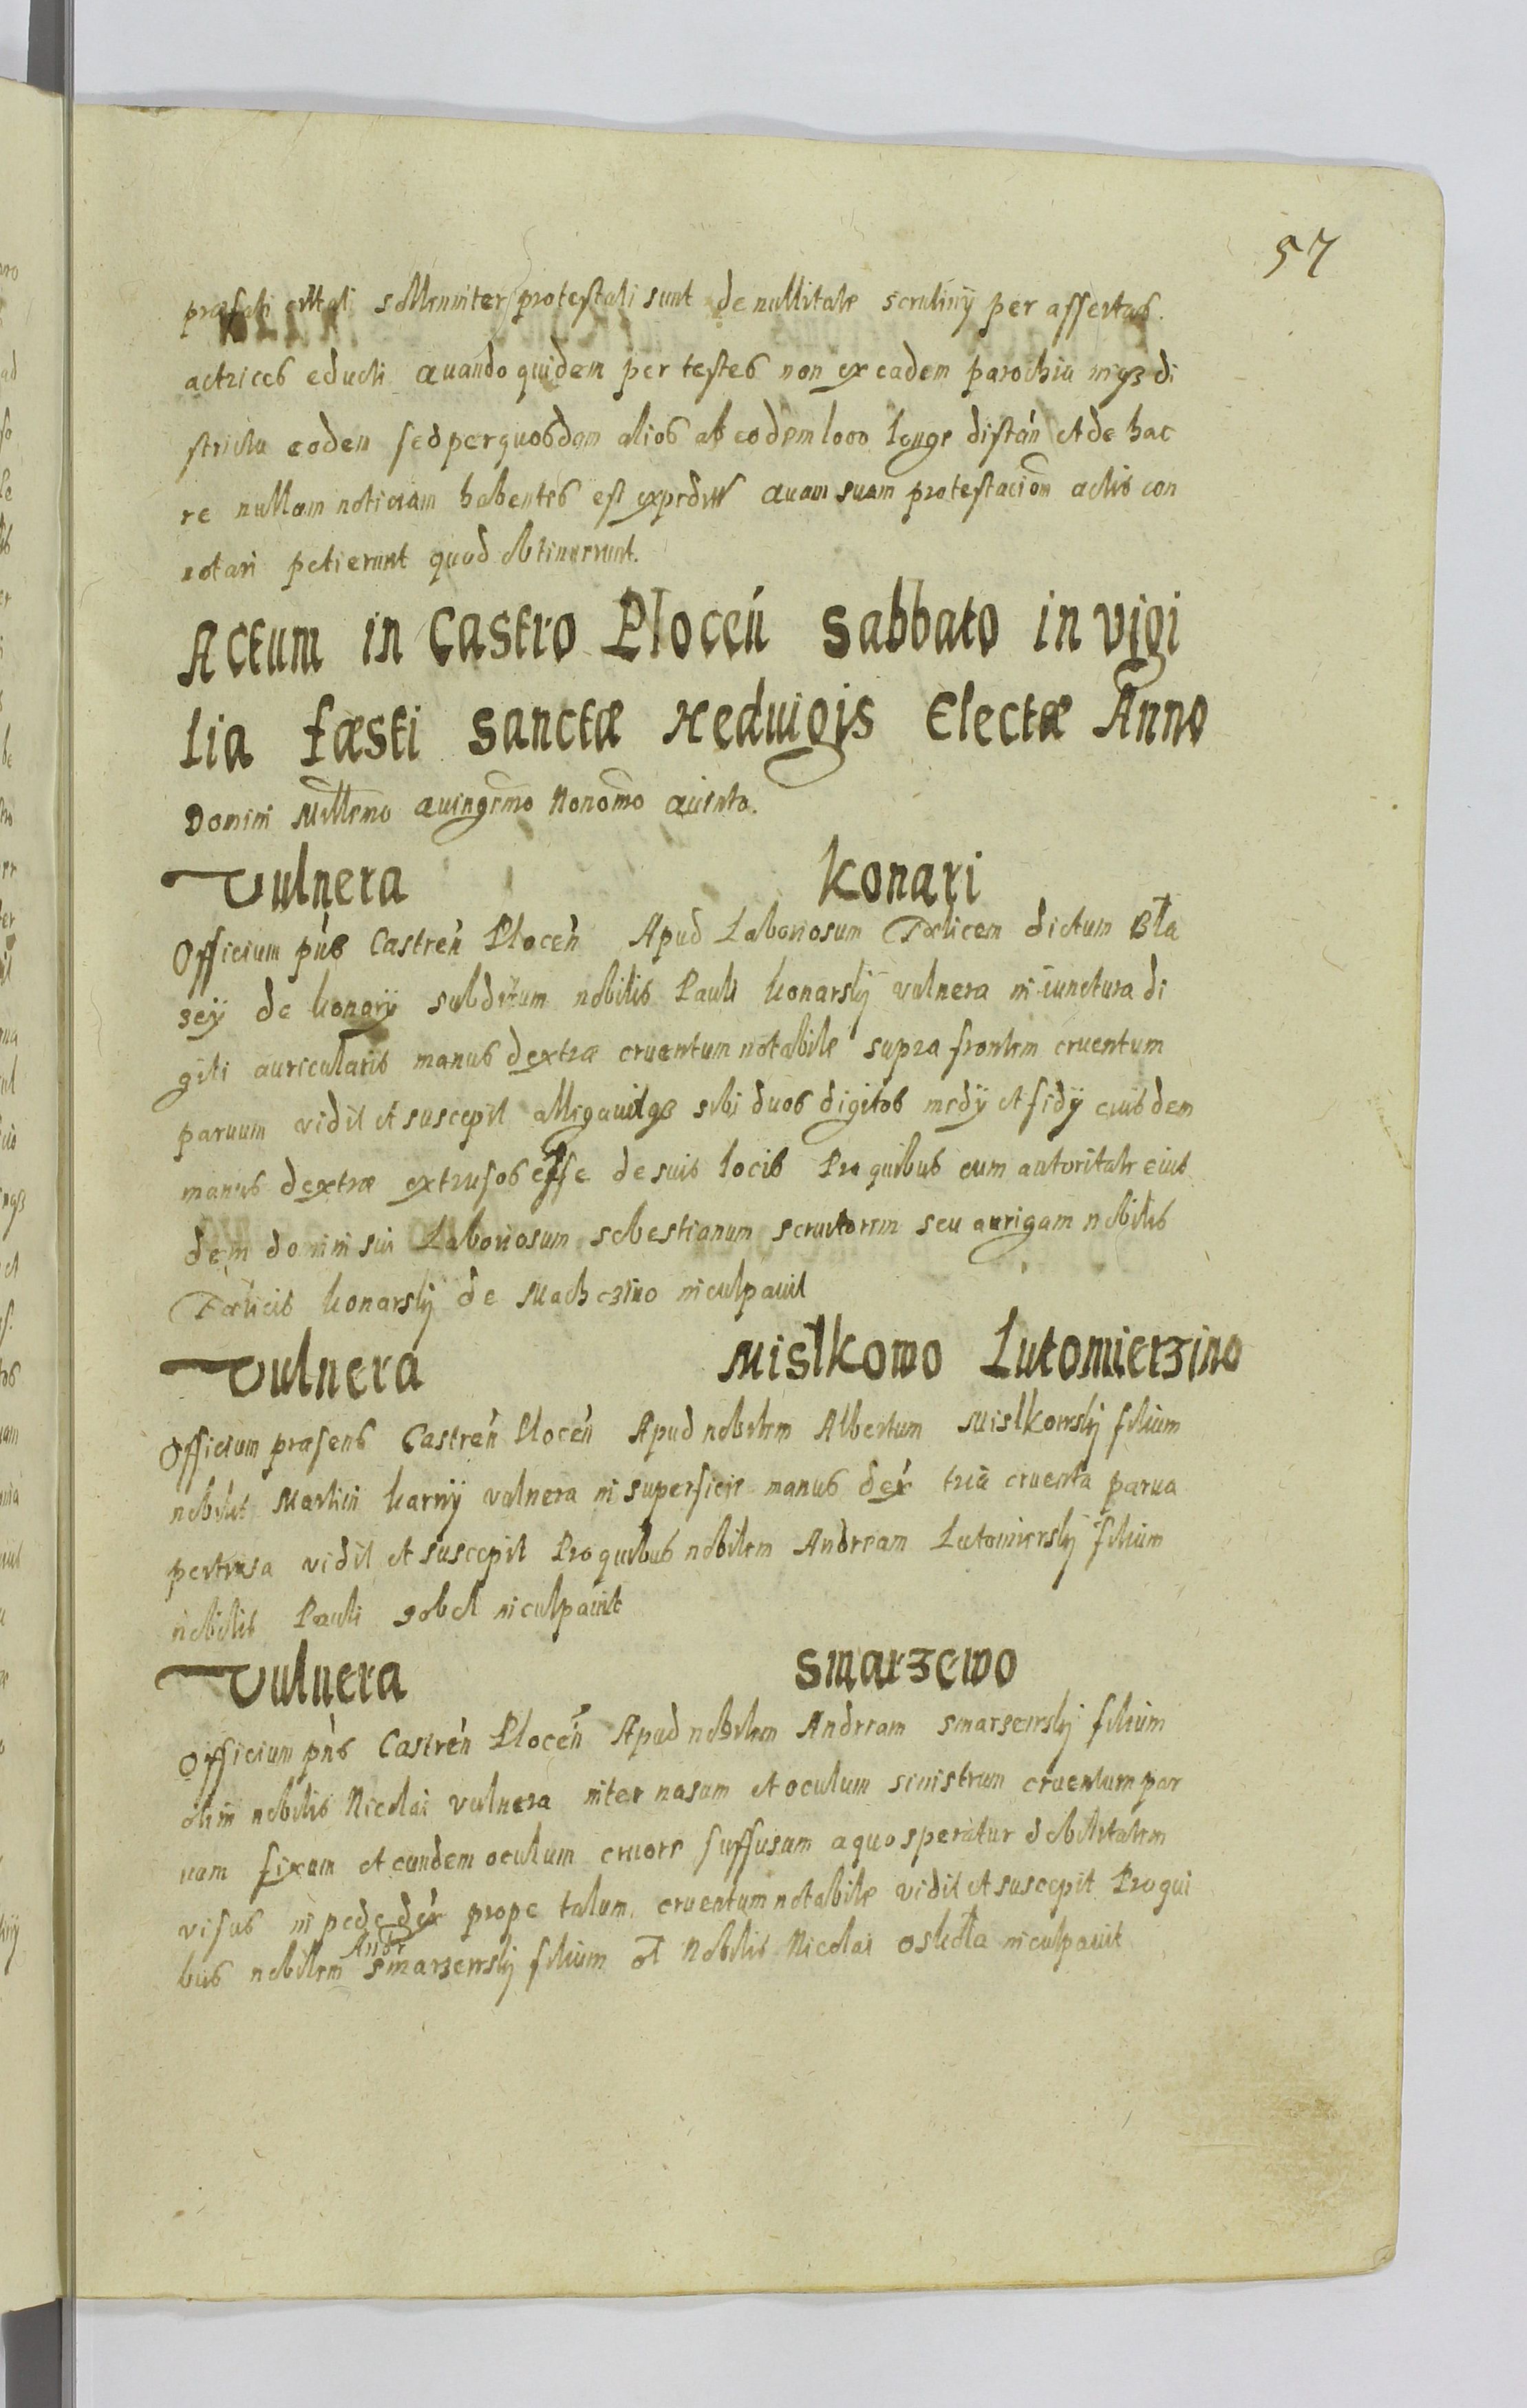 57
præfati citati sollenniter protestati sunt de nullitate scrutinij per assertas
actrices educti quandoquidem per testes non ex eadem parochia neqз di
strictu eodem sed per quosdam alios ab eodem loco longe distañ et de hac
re nullam noticiam habentes est expeditũ quam suam protestacioñ actis con
notari petierunt quod obtinuerunt.
Actum in Castro Ploceñ Sabbato in vigi
lia fæsti Sanctæ Heduigis Electæ Anno
Domini Millemo quingemo Nonomo quinto.
Vulnera Konari
Officium pñs Castreñ Ploceñ Apud Laboriosum Fælicem dictum Bła
zey de konary subditum nobilis Pauli konarskij vulnera in iunctura di
giti auricularis manus dextræ cruentum notabile supra frontem cruentum
paruum vidit et suscepit alligauitqз sibi duos digitos medij et fidij eiusdem
manus dextræ extrusos esse de suis locis Pro quibus cum autoritate eius
dem domini sui Laboriosum sebestianum seruitorem seu aurigam nobilis
Fælicis konarskij de Machczino inculpauit
Vulnera Mislkowo Lutomierzino
Officium præsens Castreñ Ploceñ Apud nobilem Albertum Mislkowskij filium
nobilis Martini karnij vulnera in superficie manus dex tria cruenta parua
pertusa vidit et suscepit Pro quibus nobilem Andream Lutomierskij filium
nobilis Pauli gobel inculpauit
Vulnera Smarzewo
Officium pñs Castreñ Ploceñ Apud nobilem Andream smarzewskij filium
olim nobilis Nicolai vulnera inter nasum et oculum sinistrum cruentum par
uum fixum et eundem oculum cruore suffusum a quo speratur debilitatem
visus in pede dex prope talum cruentum notabile vidit et suscepit Pro qui
bus nobilem Andr smarzewskij filium ol Nobilis Nicolai oskoła inculpauit